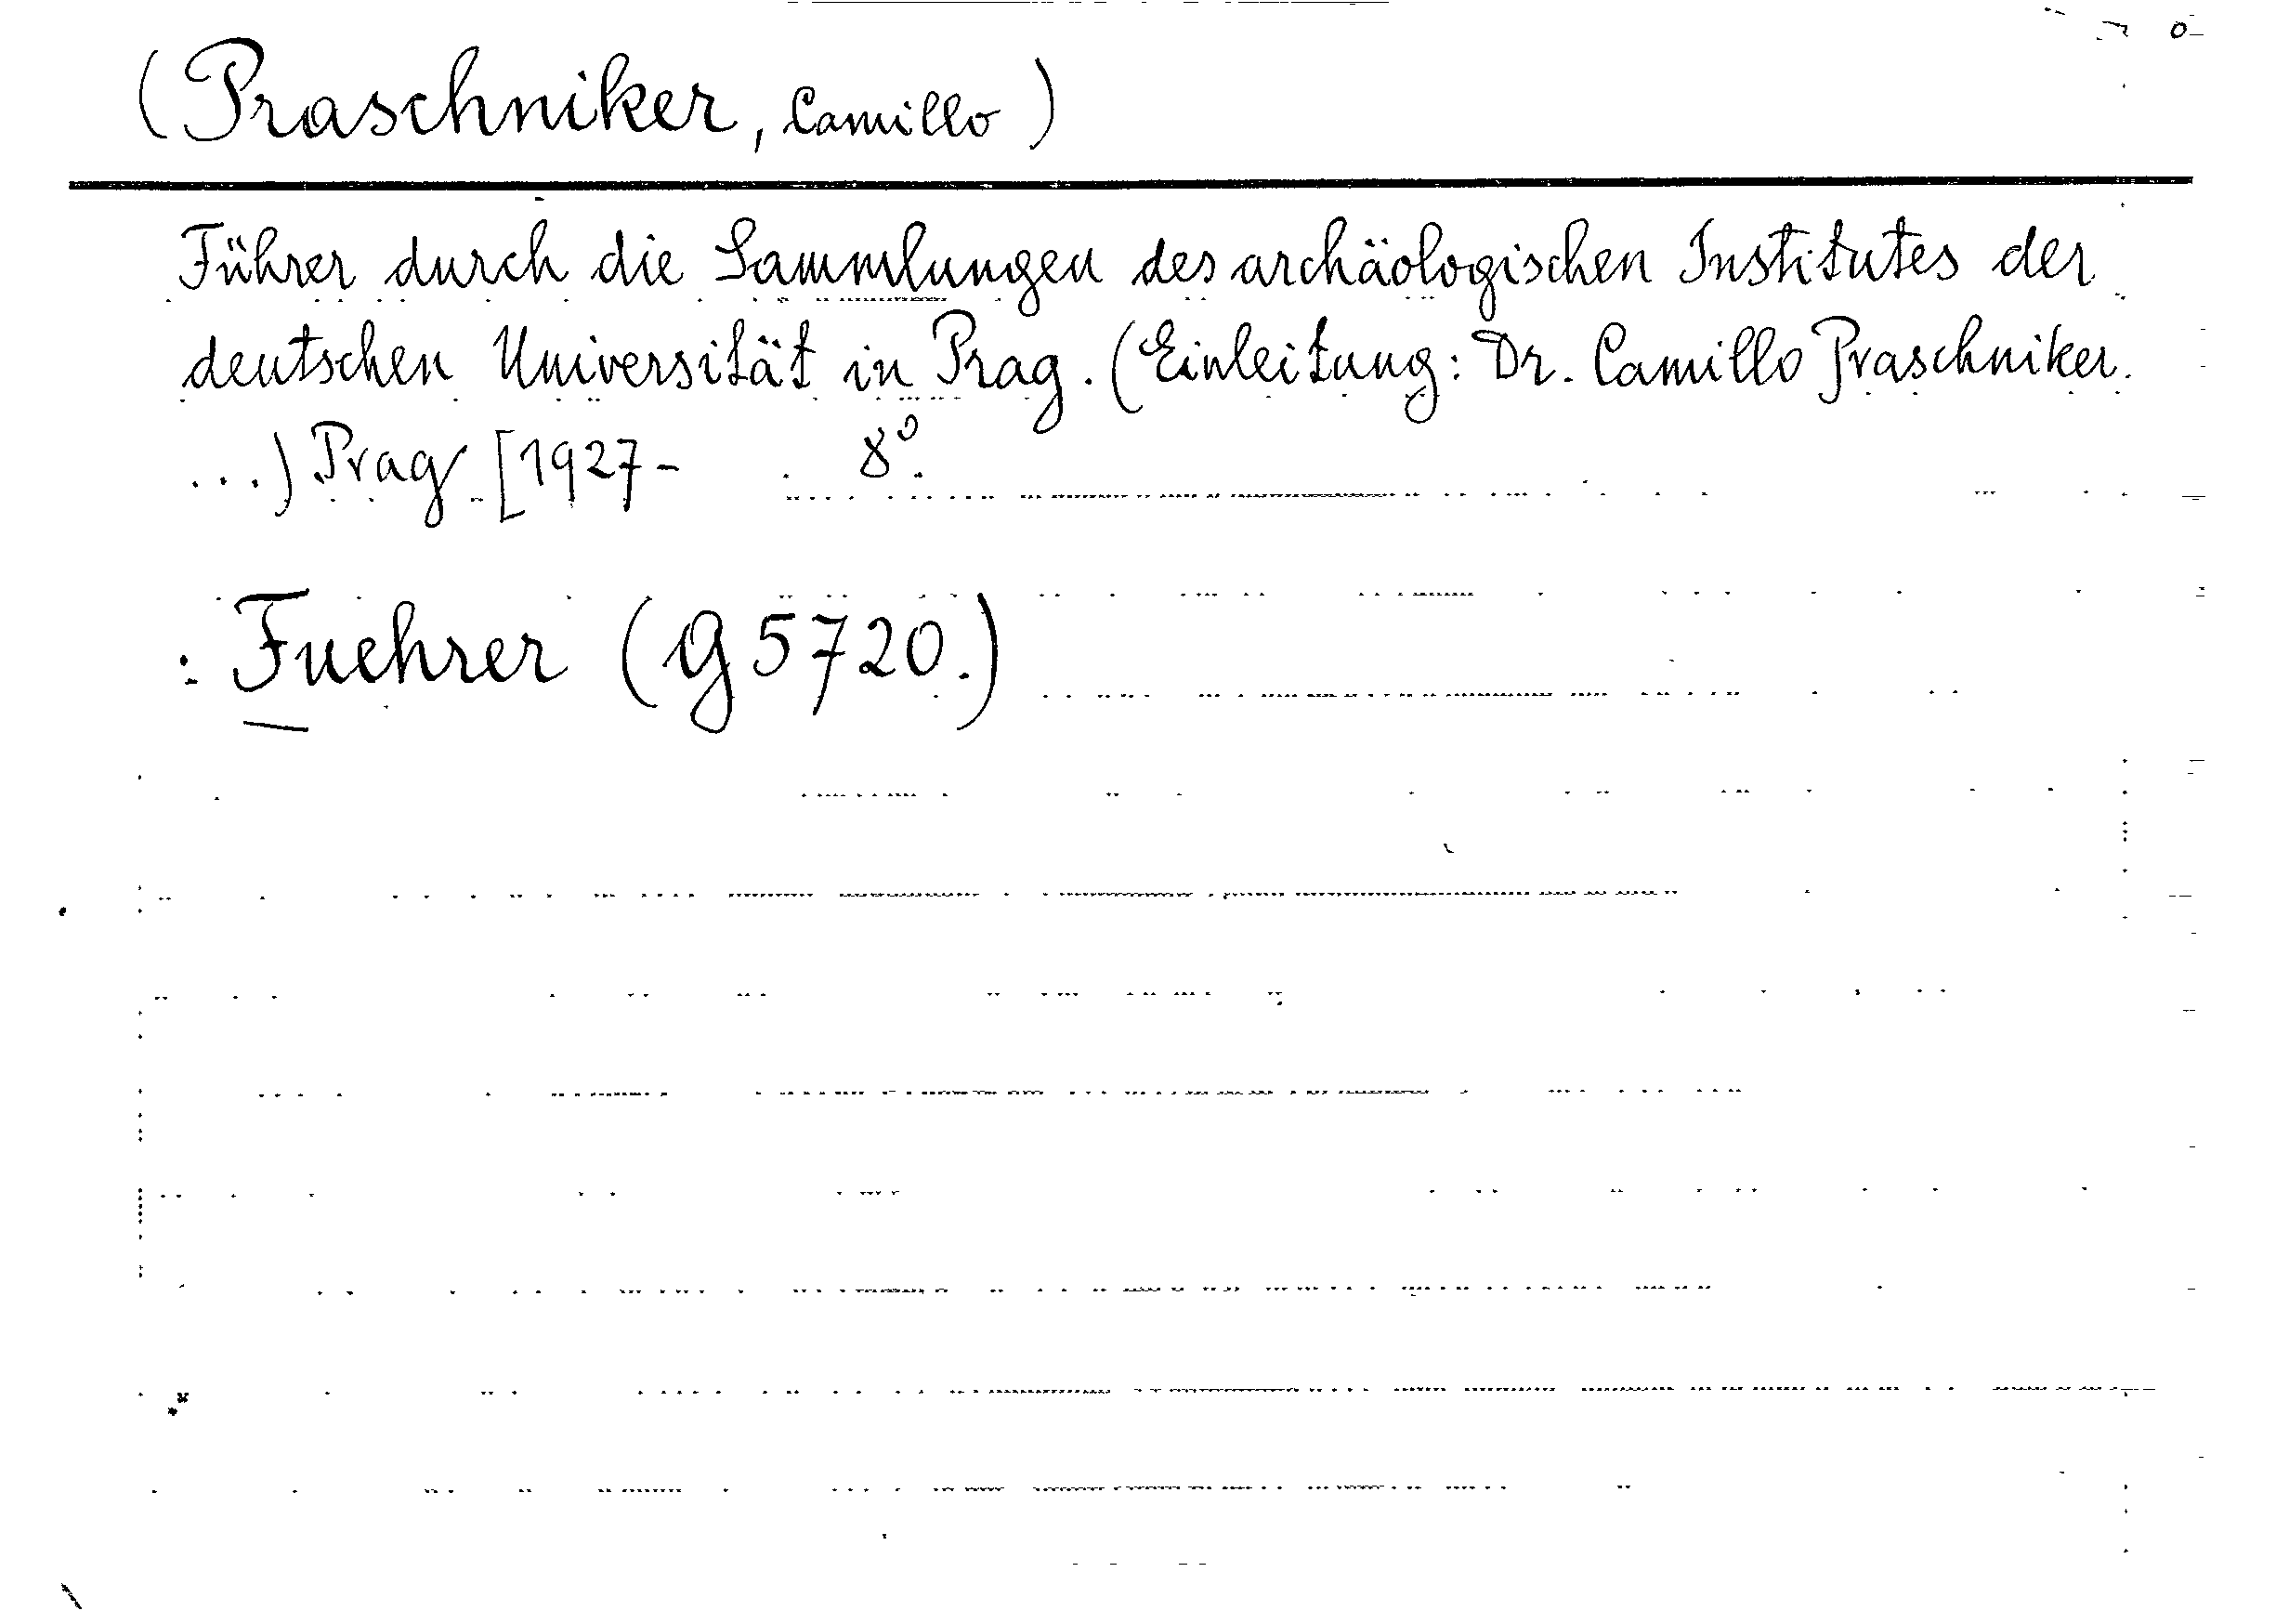 (Praschniker, Camillo)
Führer durch die Sammlungen des archäologischen Institutes der
deutschen Universität in Prag. (Einleitung: Dr. Camillo Praschniker.
...) Prag [1927- 8°.
: Fuehrer (g 5720.)